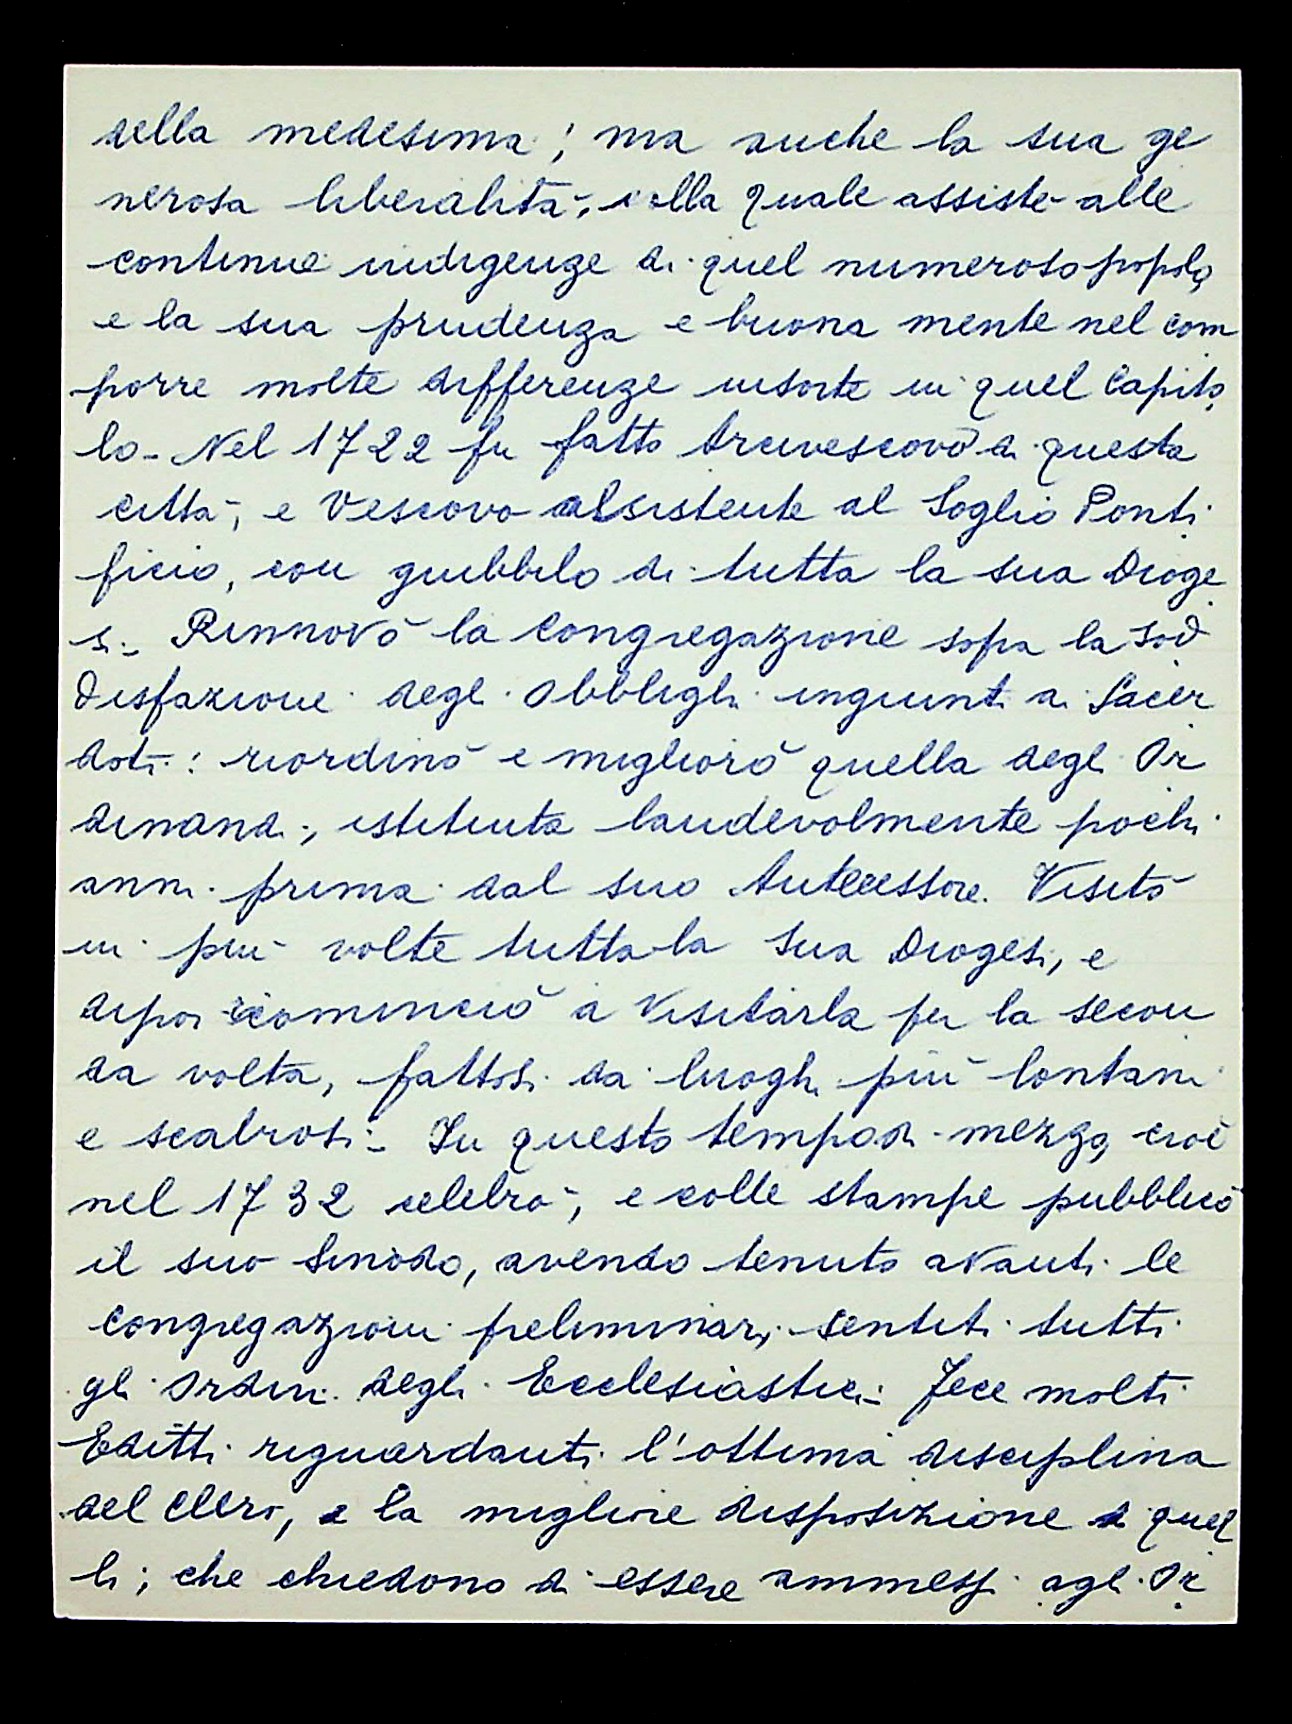 della medesima; ma anche la sua ge
nerosa liberalità, colla quale assistè alle
continue indigenze di quel numeroso popolo,
e la sua prudenza e buona mente nel com
porre molte differenze insorte in quel Capito,
lo - Nel 1722 fu fatto Arcivescovo di questa
città, e Vescovo assistente al Soglio Ponti
ficio, con giubbilo di tutta la sua Dioge
si - Rinnovò la Congregazione sopra la Sod
disfazione degli Obblighi ingiunti ai Sacer
doti: riordinò e migliorò quella degli Or
dinandi, istituita laudevolmente pochi
anni prima dal suo Antecessore. Visitò
in più volte tutta la sua Diogesi, e
dipoi ricominciò a visitarla per la secon
da volta, fattosi da luoghi più lontani
e scabrosi - In questo tempo di mezzo, cioè
nel 1732 celebrò, e colle stampe pubblicò
il suo Sinodo, avendo tenuto avanti le
Congregazioni preliminari, sentiti tutti
gli Ordini degli Ecclesiastici - Fece molti
Editti riguardanti l'ottima disciplina
del Clero, e la migliore disposizione di quel
li, che chiedono di essere ammessi agli Or